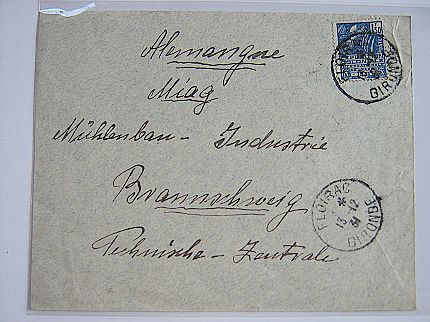 Alemangne
Miag
Mühlenbau - Industrie
Braunschweig
Technische - Zentrale
FLOIRAC
GIRONDE
FLOIRAC
*
13 -12
31
GIRONDE